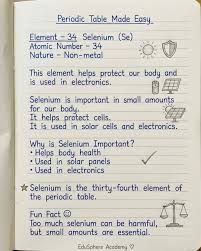 Periodic Table Made Easy
Element - 34 Selenium (Se)
Atomic Number - 34
Nature - Non-metal
This element helps protect our body and
is used in electronics.
Selenium is important in small amounts
for our body.
It helps protect cells.
It is used in solar cells and electronics.
Why is Selenium Important?
• Helps body health
• Used in solar panels
• Used in electronics
Selenium is the thirty-fourth element of
the periodic table.
Fun Fact ☺
Too much selenium can be harmful,
but small amounts are essential.
EduSphere Academy ♡